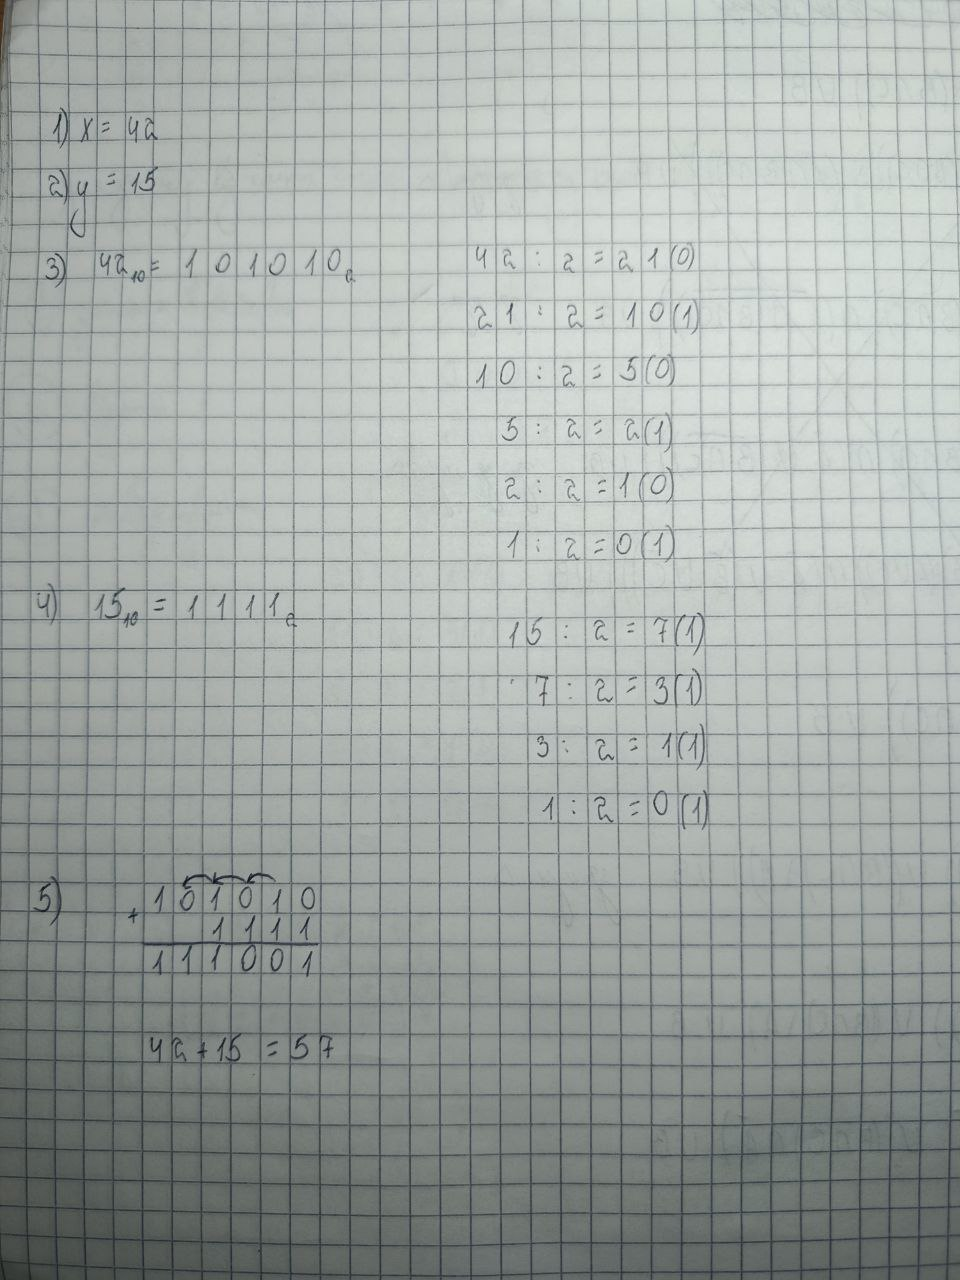 1) x = 42
2) y = 15
3) 42₁₀ = 101010₂
42 : 2 = 21(0)
21 : 2 = 10(1)
10 : 2 = 5(0)
5 : 2 = 2(1)
2 : 2 = 1(0)
1 : 2 = 0(1)
4) 15₁₀ = 1111₂
15 : 2 = 7(1)
7 : 2 = 3(1)
3 : 2 = 1(1)
1 : 2 = 0(1)
5) 101010
+ 1111
111001
42 + 15 = 57